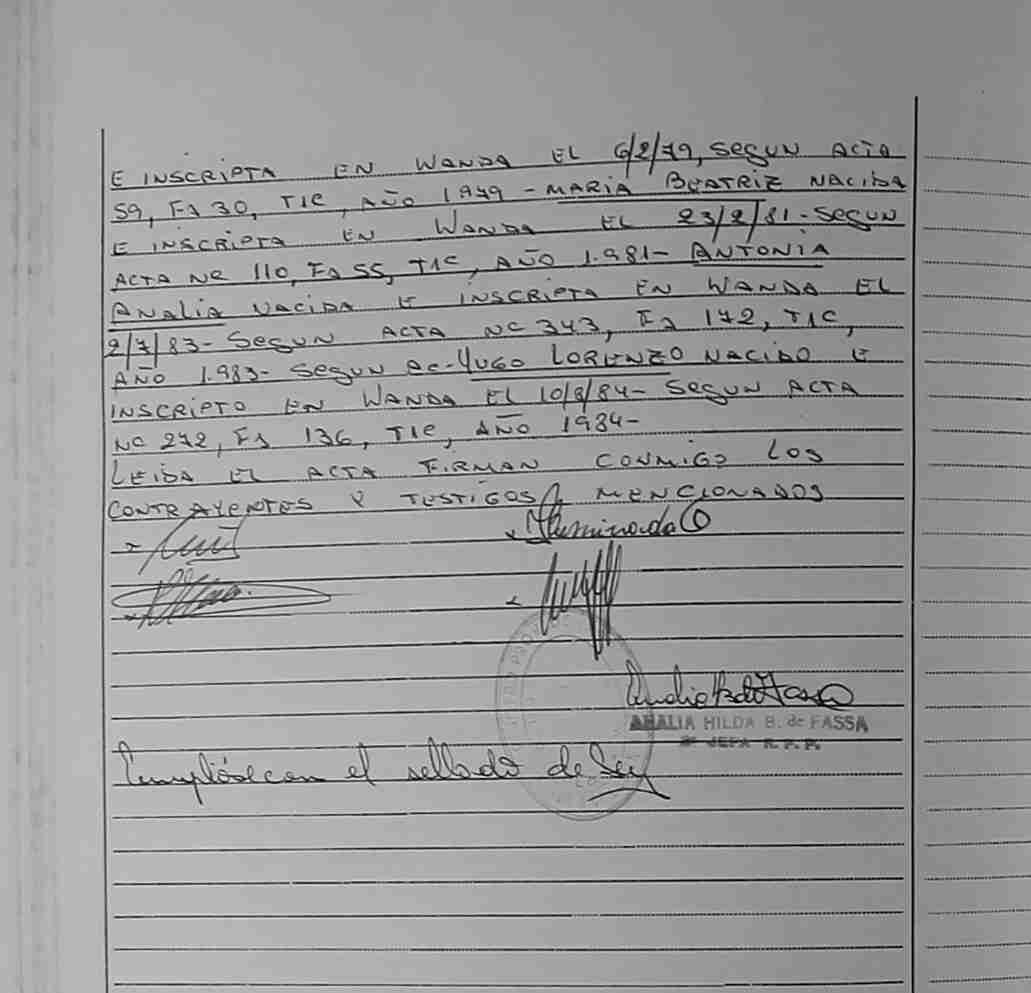 E INSCRIPTA EN WANDA EL 6/2/79, SEGUN ACTA
59, Fs 30, T1C, AÑO 1979 - MARIA BEATRIZ NACIDA
E INSCRIPTA EN WANDA EL 23/2/81 - SEGUN
ACTA Nº 110, Fs 55, T1C, AÑO 1.981 - ANTONIA
ANALIA NACIDA E INSCRIPTA EN WANDA EL
2/7/83 - SEGUN ACTA Nº 343, Fs 172, T1C,
AÑO 1.983 - SEGUN AC - HUGO LORENZO NACIDO E
INSCRIPTO EN WANDA EL 10/8/84 - SEGUN ACTA
Nº 272, Fs 136, T1C, AÑO 1984 -
LEIDA EL ACTA FIRMAN CONMIGO LOS
CONTRAYENTES Y TESTIGOS MENCIONADOS
Iluminada
ANALIA HILDA B. de FASSA
JEFA R.P.P.
Cumplóse con el sellado de Ley